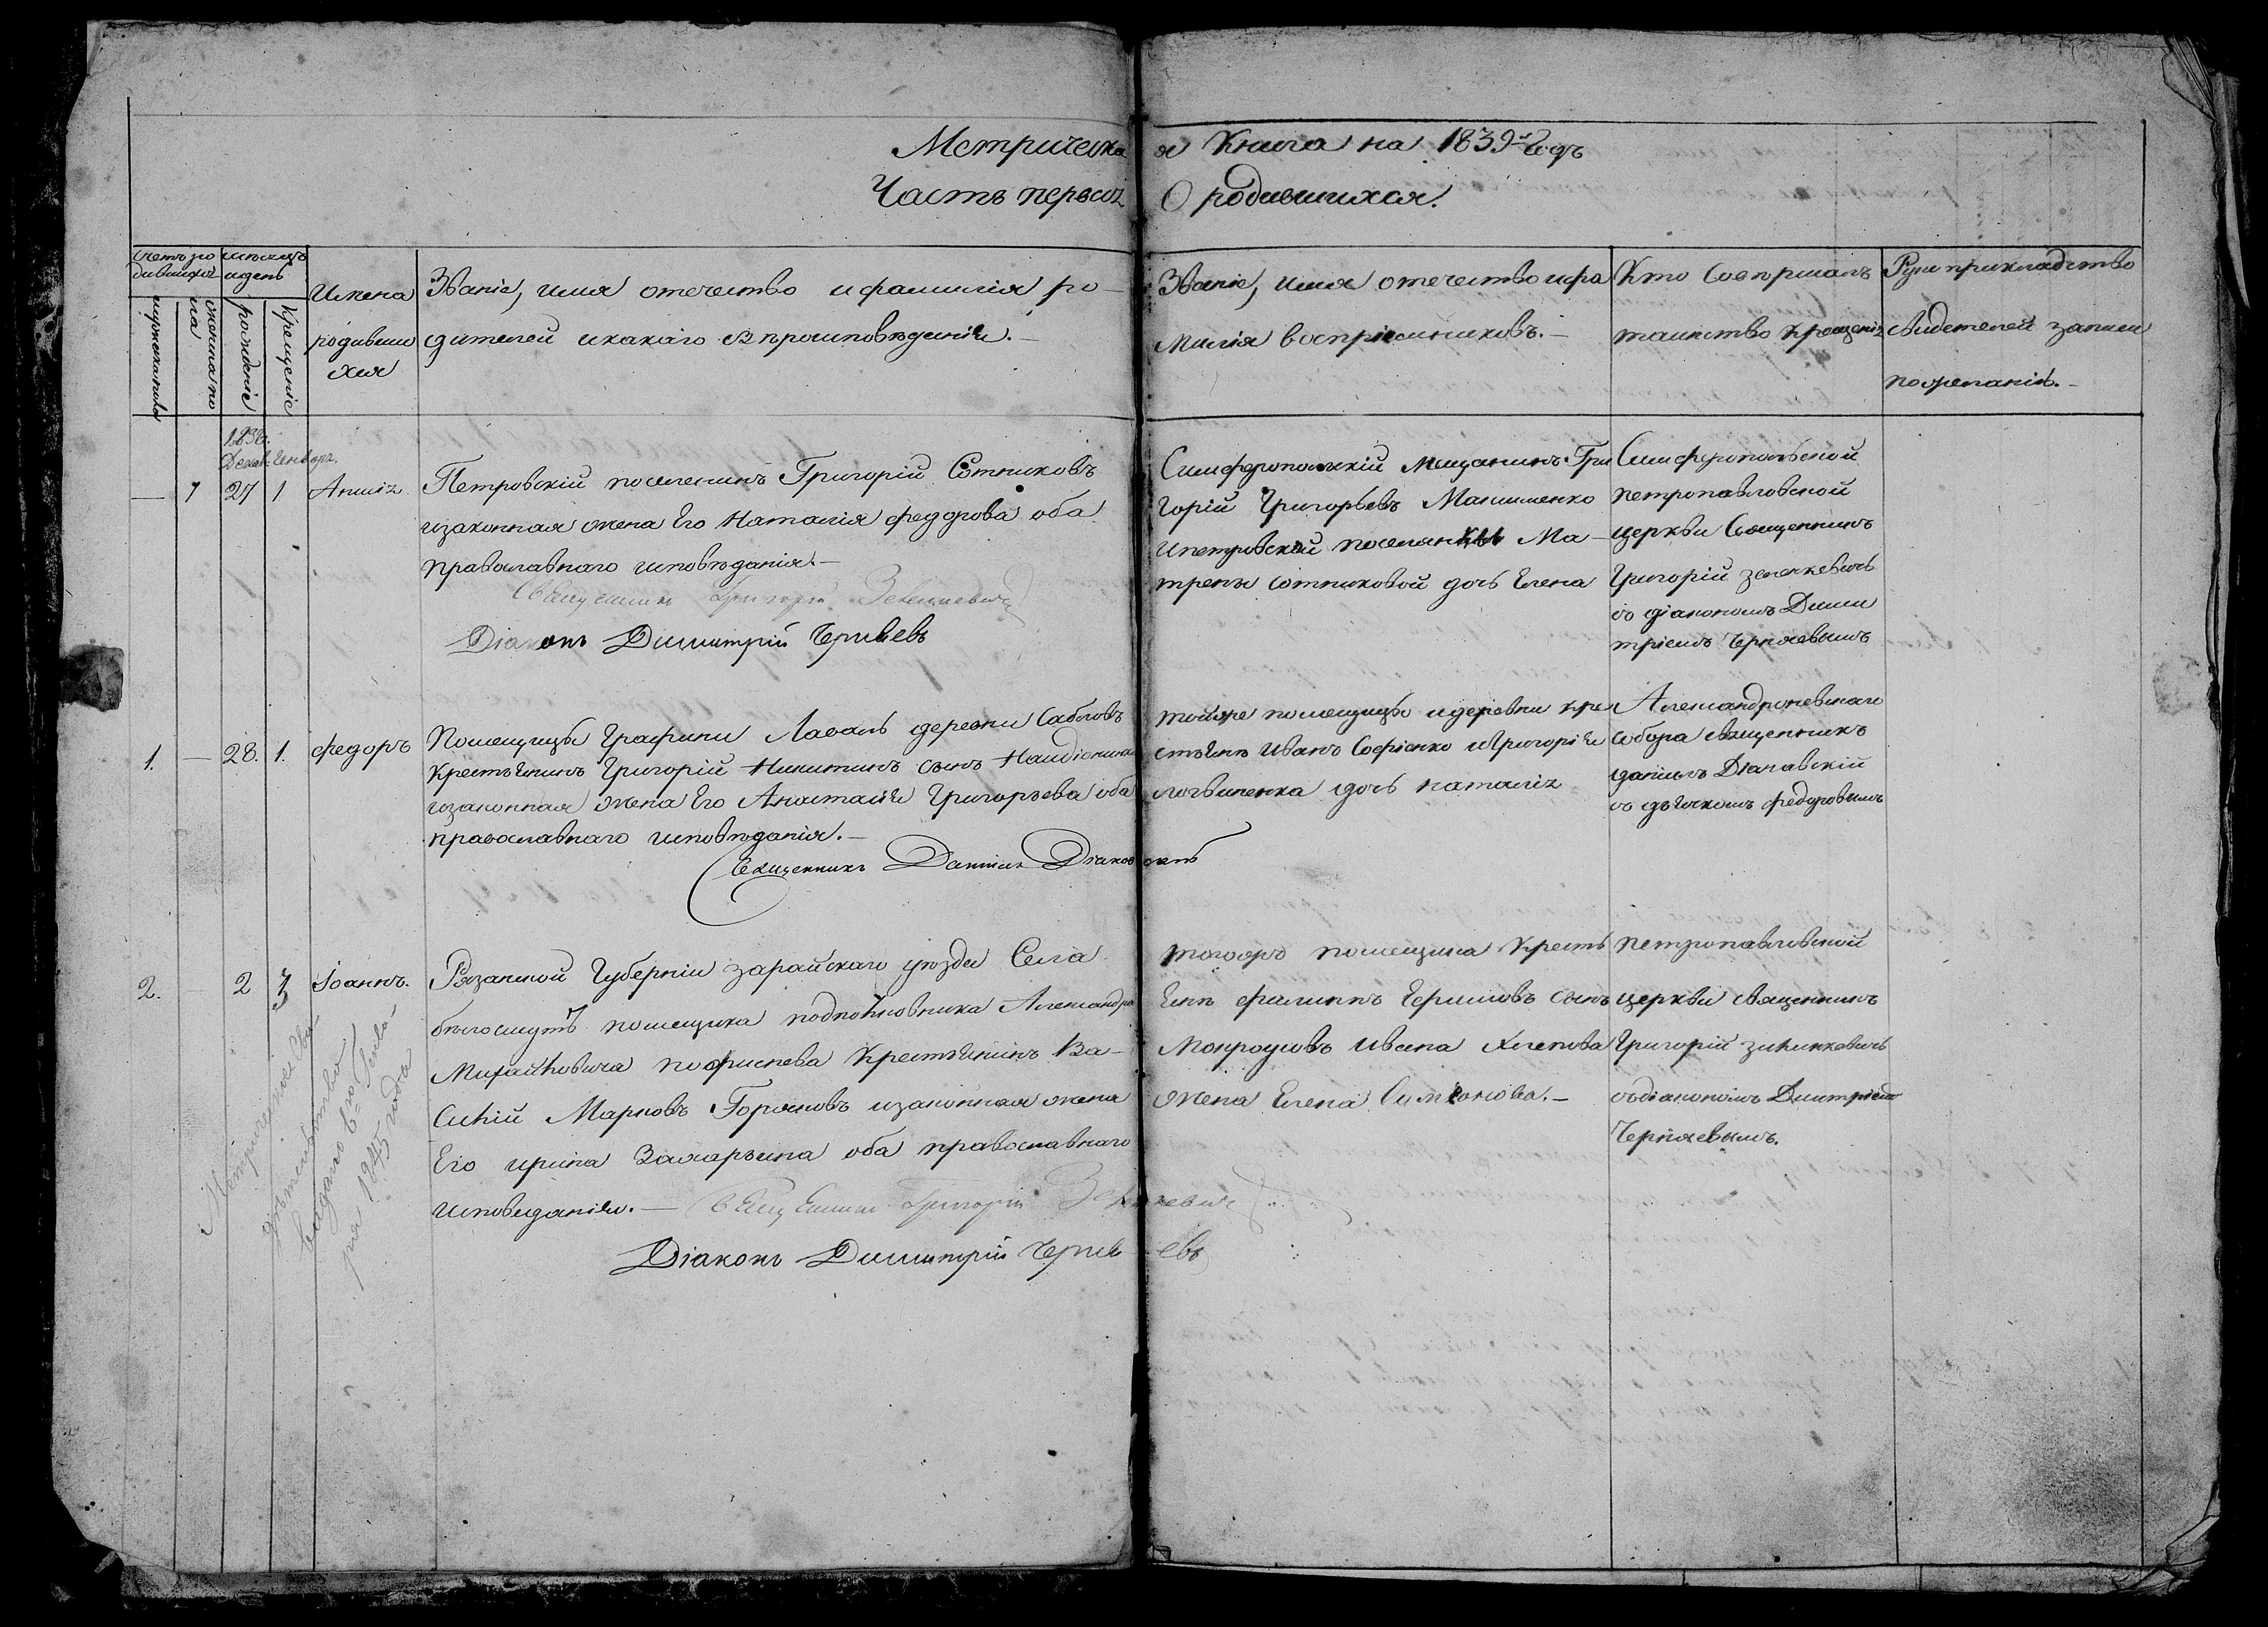 Метрическая Книга на 1839-й Годъ
Часть первая О родившихся.
Счетъ родившихся
мужеска пола
женска по
ла
месяцъ
и день
рожденіе
Крещеніе
Имена
родивши
хся
Званіе, имя отечество и фамилія ро-
дителей и какого вѣроисповѣданія.-
Званіе, имя отечество и фа
милія воспріемниковъ.-
Кто Совершалъ
таинство крещенія
Руко прикладство
свидетелей записи
по желанію.-
Декаб. Генваря.
— 1 27 1 Анна
Петровскій поселенинъ Григорій Сотниковъ
и законная жена Его Наталія Федорова оба
православнаго исповѣданія.-
Священникъ Григорій
Діаконъ Димитрій Черняевъ
Симферопольскій Мещанинъ Гри
горій Григорьевъ Максименко
и петровской поселянки Ма-
трены Сотниковой дочь Елена
Симферопольской
петропавловской
церкви Священникъ
Григорій Зенкевичь
со діакономъ Дими
тріемъ Черняевымъ
1. — 28. 1. Федоръ
Помещицы Графини Лаваль деревни Сабловъ
Крестьянинъ Григорій Никитинъ сынъ
и законная жена Его Анастасія Григорьева оба
православнаго исповѣданія.-
Священникъ Даніилъ Діаковскій
той же помещицы и деревни кре
стьянъ Иванъ Софіенко и Григорія
логвиненка дочь наталія
Александроневскаго
собора священникъ
даніилъ Діаковскій
со дьячкомъ Федоровымъ
2. 2 3 Іоаннъ.
Рязанской Губерніи зарайскаго уѣзда Села
помещика подполковника Александра
Михайловича Крестьянинъ Ва-
силій Марковъ Горяновъ и законная жена
Его ирина Захарьина оба православнаго
исповеданія.- Священникъ Григорій
Діаконъ Димитрій Черняевъ
тогожъ помещика Кресть
янъ филиппъ сынъ
и Хлепова
жена Елена Симеонова.-
петропавловской
церкви священникъ
Григорій зинкевичь
со діакономъ Димитріемъ
Черняевымъ.
Метрическое сви
дѣтельство
выдано 6-го
ря 1845 года